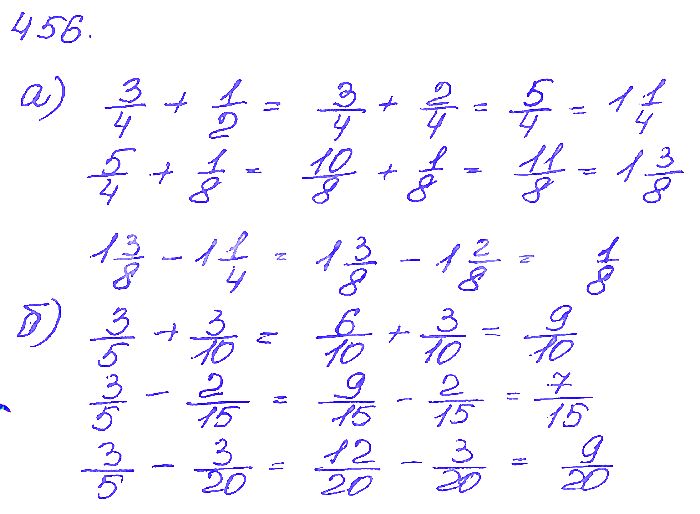 456.
а) 3/4 + 1/2 = 3/4 + 2/4 = 5/4 = 1 1/4
5/4 + 1/8 = 10/8 + 1/8 = 11/8 = 1 3/8
1 3/8 - 1 1/4 = 1 3/8 - 1 2/8 = 1/8
б) 3/5 + 3/10 = 6/10 + 3/10 = 9/10
3/5 - 2/15 = 9/15 - 2/15 = 7/15
3/5 - 3/20 = 12/20 - 3/20 = 9/20